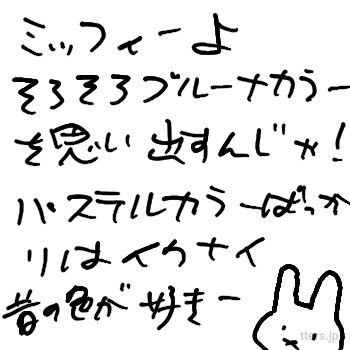 ミッフィーよ
そろそろブルーナカラー
を思い出すんじゃ!
パステルカラーばっか
りはイクナイ
昔の色が好きー
tters.jp